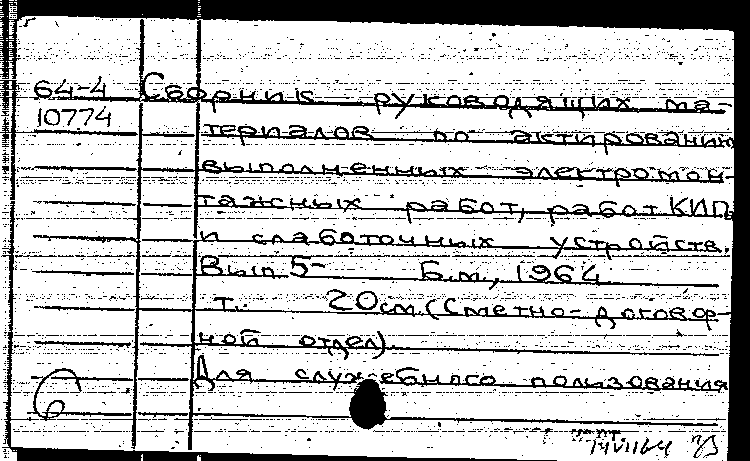 64-4 Сборник руководящих ма-
10774 териалов по актированию
выполненных электромон-
тажных работ, работ КИП
и слаботочных устройств.
Вып. 5- Б.м., 1964
т. 20см. (Сметно-договор-
ной отдел).
Для служебного пользования
б